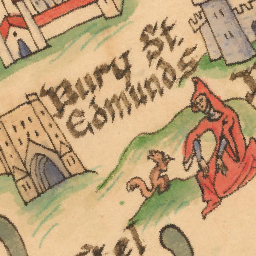 Bury St.
Edmunds